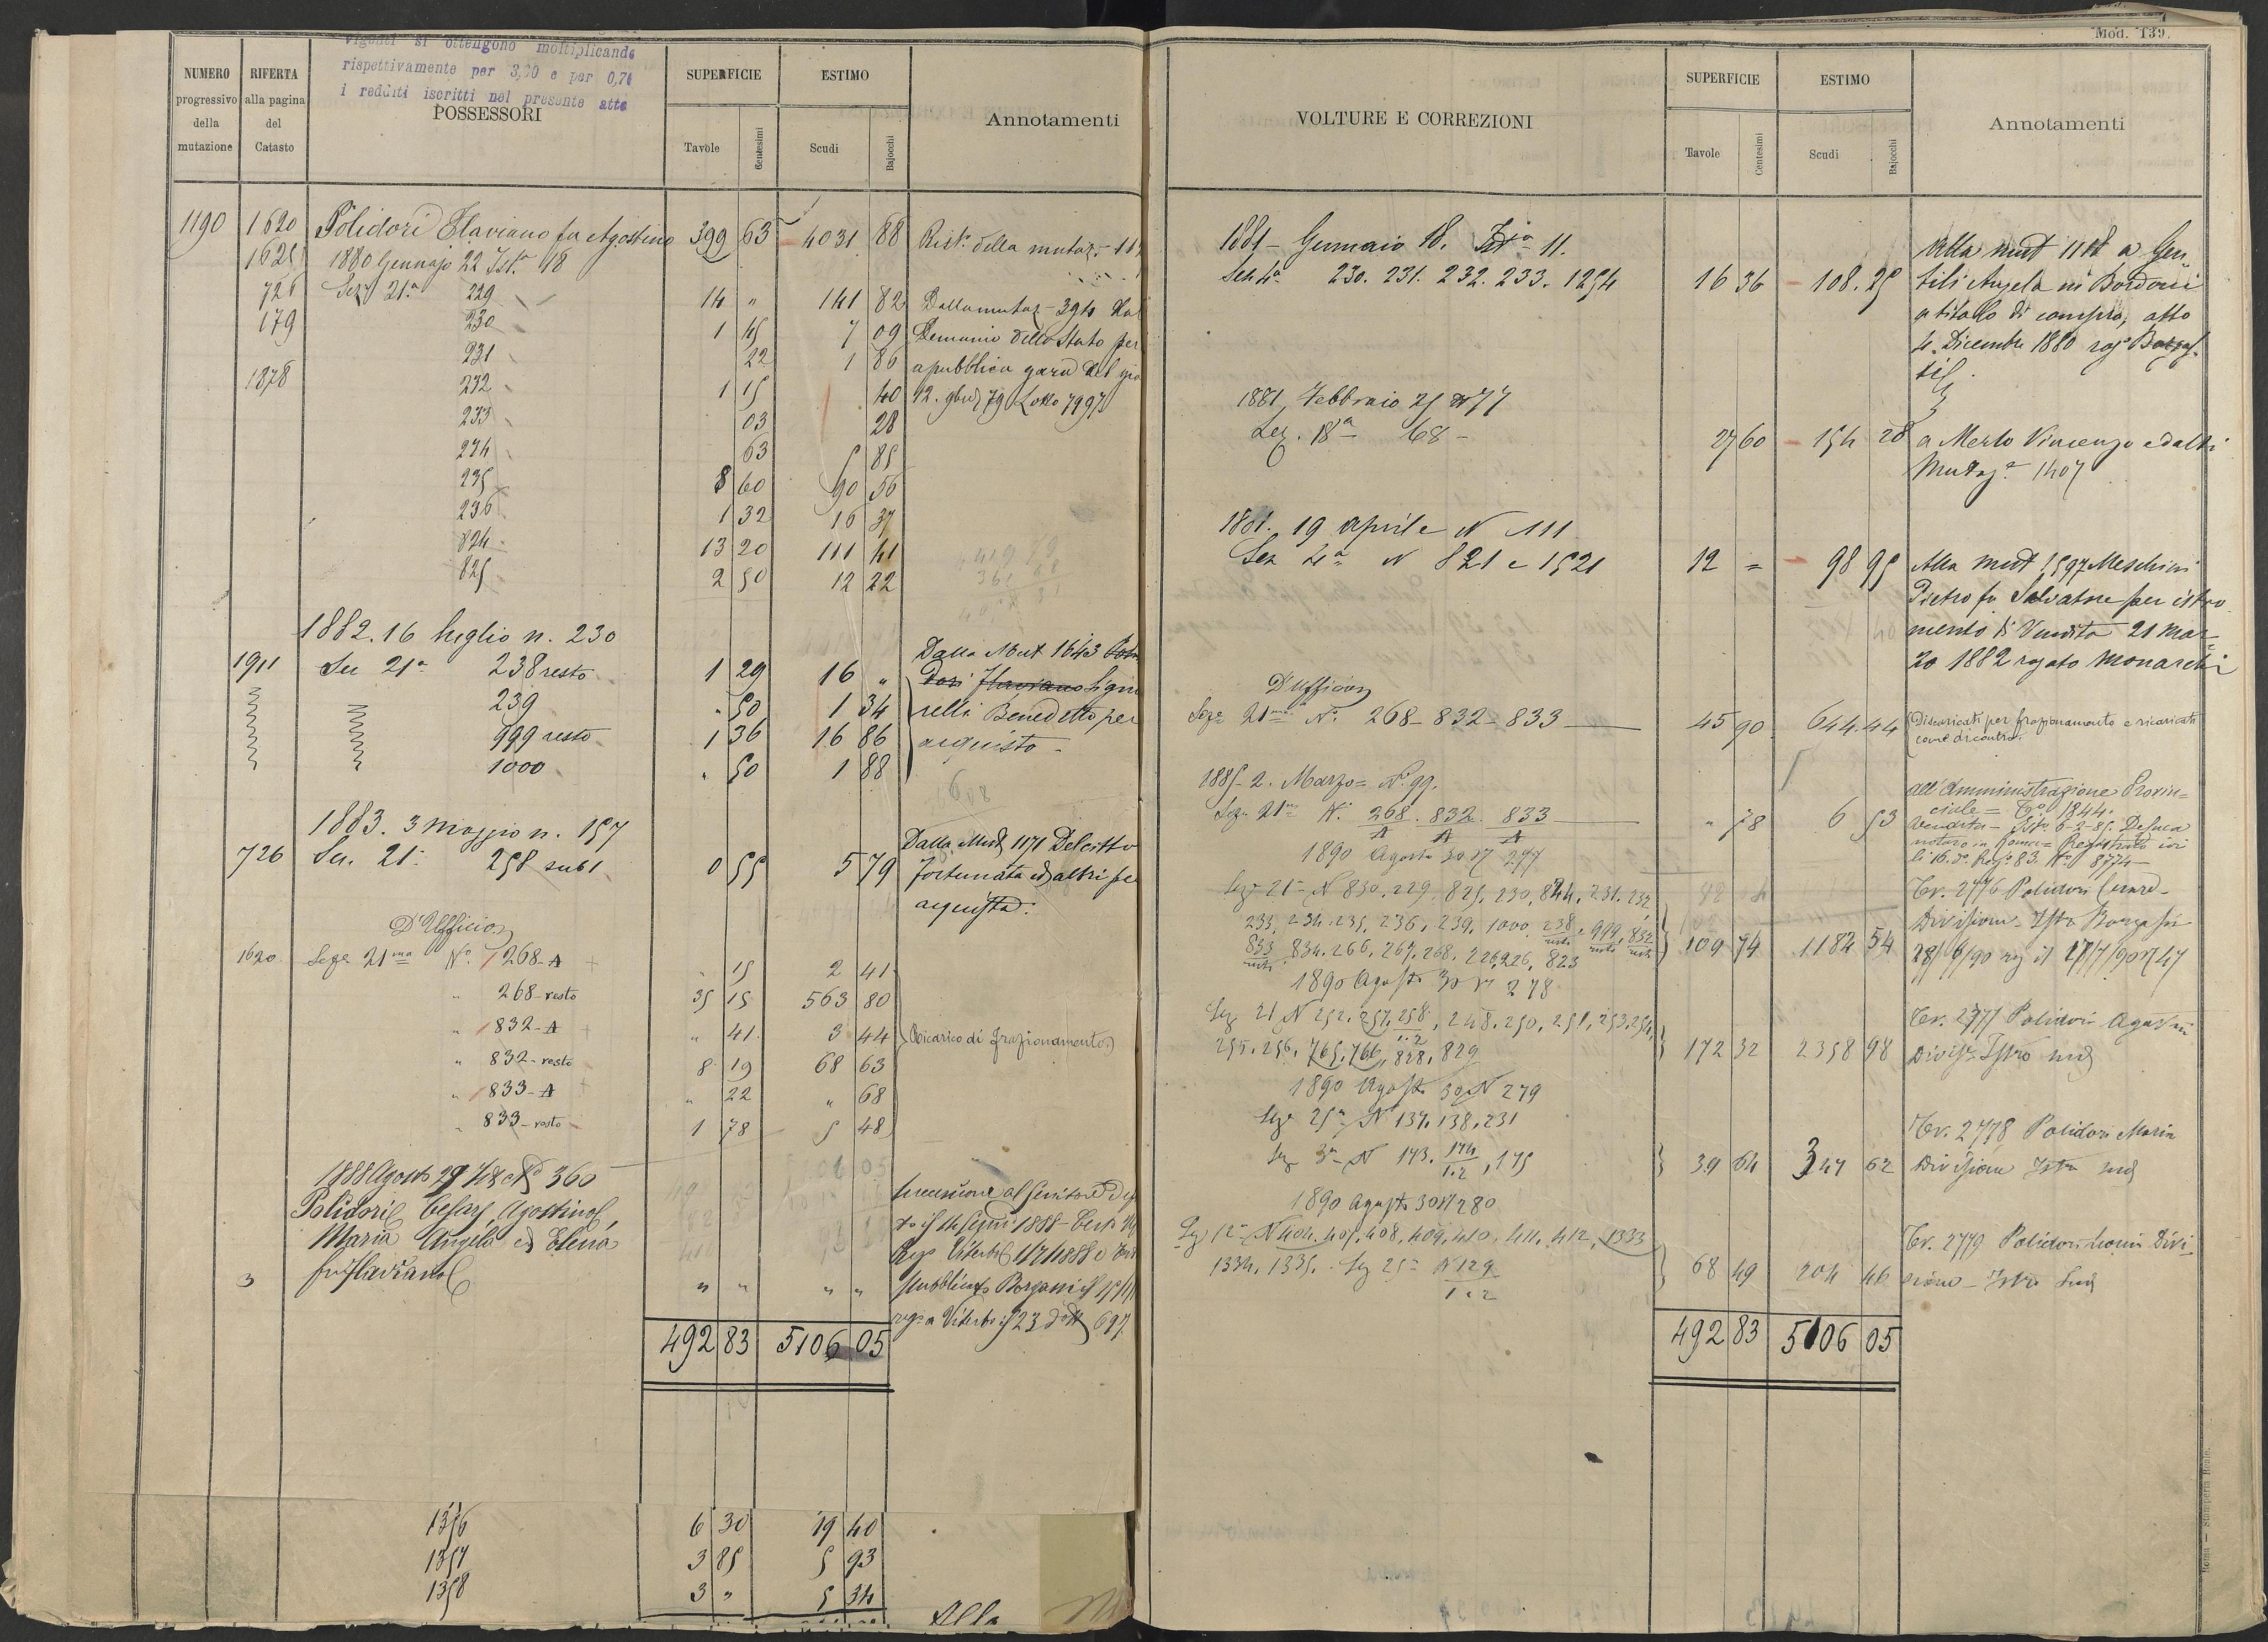 vigenti si ottengono moltiplicando
rispettivamente per e per
i redditi iscritti nel presente atto
NUMERO progressivo della mutazione
RIFERTA alla pagina del Catasto
POSSESSORI
SUPERFICIE
Tavole Centesimi
ESTIMO
Scudi Bajocchi
Annotamenti
1190 1620 Polidori Flaviano fu Agostino 399 63 4031 88 Rist. della mutaz.
1880 Gennajo 22 Ist.a 18
726 Sez. 21.a 229 14 " 141 82 Dalla mutaz. 394 dal
179 230 1 45 7 09 Demanio dello Stato per
231 22 1 86 a pubblica gara del
1878 232 1 15 40 12. 9bre 79 Lotto 7997
233 03 28
234 63 5 85
235 8 60 90 56
236 1 32 16 37
824 13 20 111 41
825 2 50 12 22
1882. 16 luglio n. 230
Dalla Mut 1643
1911 Sez 21a 238 resto 1 29 16 " dori Flaviano
239 " 50 1 34 relli Benedetto per
999 resto 1 36 16 86 acquisto
1000 " 50 1 88
1883. 3 Maggio n. 157
Dalla Mut 1171 Delcitto
726 Sez. 21a 258 sub 1 0 55 5 79 Fortunata ed altri per
acquisto.
D'Ufficio
1620 Seze 21ma No. 268-A " 15 2 41
" 268-resto 35 15 563 80
" 832-A " 41 3 44 Ricarico di frazionamento
" 832-resto 8 19 68 63
" 833-A " 22 " 68
" 833-resto 1 78 5 48
1888 Agosto 29 No 360
Polidori Cesare, Agostino, Successione al Genitore
Maria Angela ed Elena 1888
fu Flaviano
3 " " " "
rega Viterbo il 23 do 697
492 83 5106 05
1356 6 30 19 40
1357 3 85 5 93
1358 3 " 5 34
Alla
Mod. 139.
VOLTURE E CORREZIONI
SUPERFICIE
Tavole Centesimi
ESTIMO
Scudi Bajocchi
Annotamenti
1881 - Gennaio 18. Ista 11.
Alla mut a Gen
Sez 4a 230. 231. 232. 233. 1254 16 36 108. 25 tili Angela in Bordoni
a titolo di compra, atto
4. Dicembre 1880 rog
1881, Febbraio 25 No 77
Sez. 18a 68 - 27 60 154 28 a Merlo Vincenzo ed altri
Mutaz.e 1407
1881. 19 aprile N 111
Sez 4a N 821 e 1521 12 = 98 95 Alla Mut 1597 Meschini
Pietro fu Salvatore per istro
mento di Vendita 21 Mar
zo 1882 rogato Monarchi
D'Ufficio
Seze 21ma No. 268-832-833 45 90 644.44 Discaricati per frazionamento e ricaricati
come di contro.
1885-2. Marzo= No. 99.
all'Amministrazione Provin=
Seze 21ma No. 268/A . 832/A . 833/A " 78 6 53 ciale = To 1844.
Vendita - Isto 6-2-85. Deluca
notaro in Roma = Registrato ivi
li 16. do. Rego 83. No. 8774
1890 Agosto 30 N 277
Seze 21a N 830, 229, 825, 230, 824, 231, 232, Tr. 2776 Polidori Cesare
233, 234, 235, 236, 239, 1000, 238 resto, 999 resto, 832 resto Divisione - Isto
833 resto, 834, 266, 267, 268, 226, 823 109 74 1182 54
1890 Agosto 30 N 278
Sez 21 N 252, 257, 258/1.2, 248, 250, 251, 253, 254, Tr. 2777 Polidori Agostino
255, 256, 765, 766, 828, 829 172 32 2358 98 Divise Istro sud
1890 Agosto 30 N 279
Seze 25a N 137, 138, 231 Tr. 2778 Polidori Maria
Sez 3a N 173. 174/1.2, 175 39 64 347 62 Divisione Isto sud
1890 Agosto 30 N 280
Sez 12a N 404, 407, 408, 409, 410, 411, 412, 1333 Tr. 2779 Polidori Divi
1334, 1335. Sez 25a N 129/1.2 68 49 204 46 sione - Istro Sud
492 83 5106 05
Roma — Stamperia Reale.